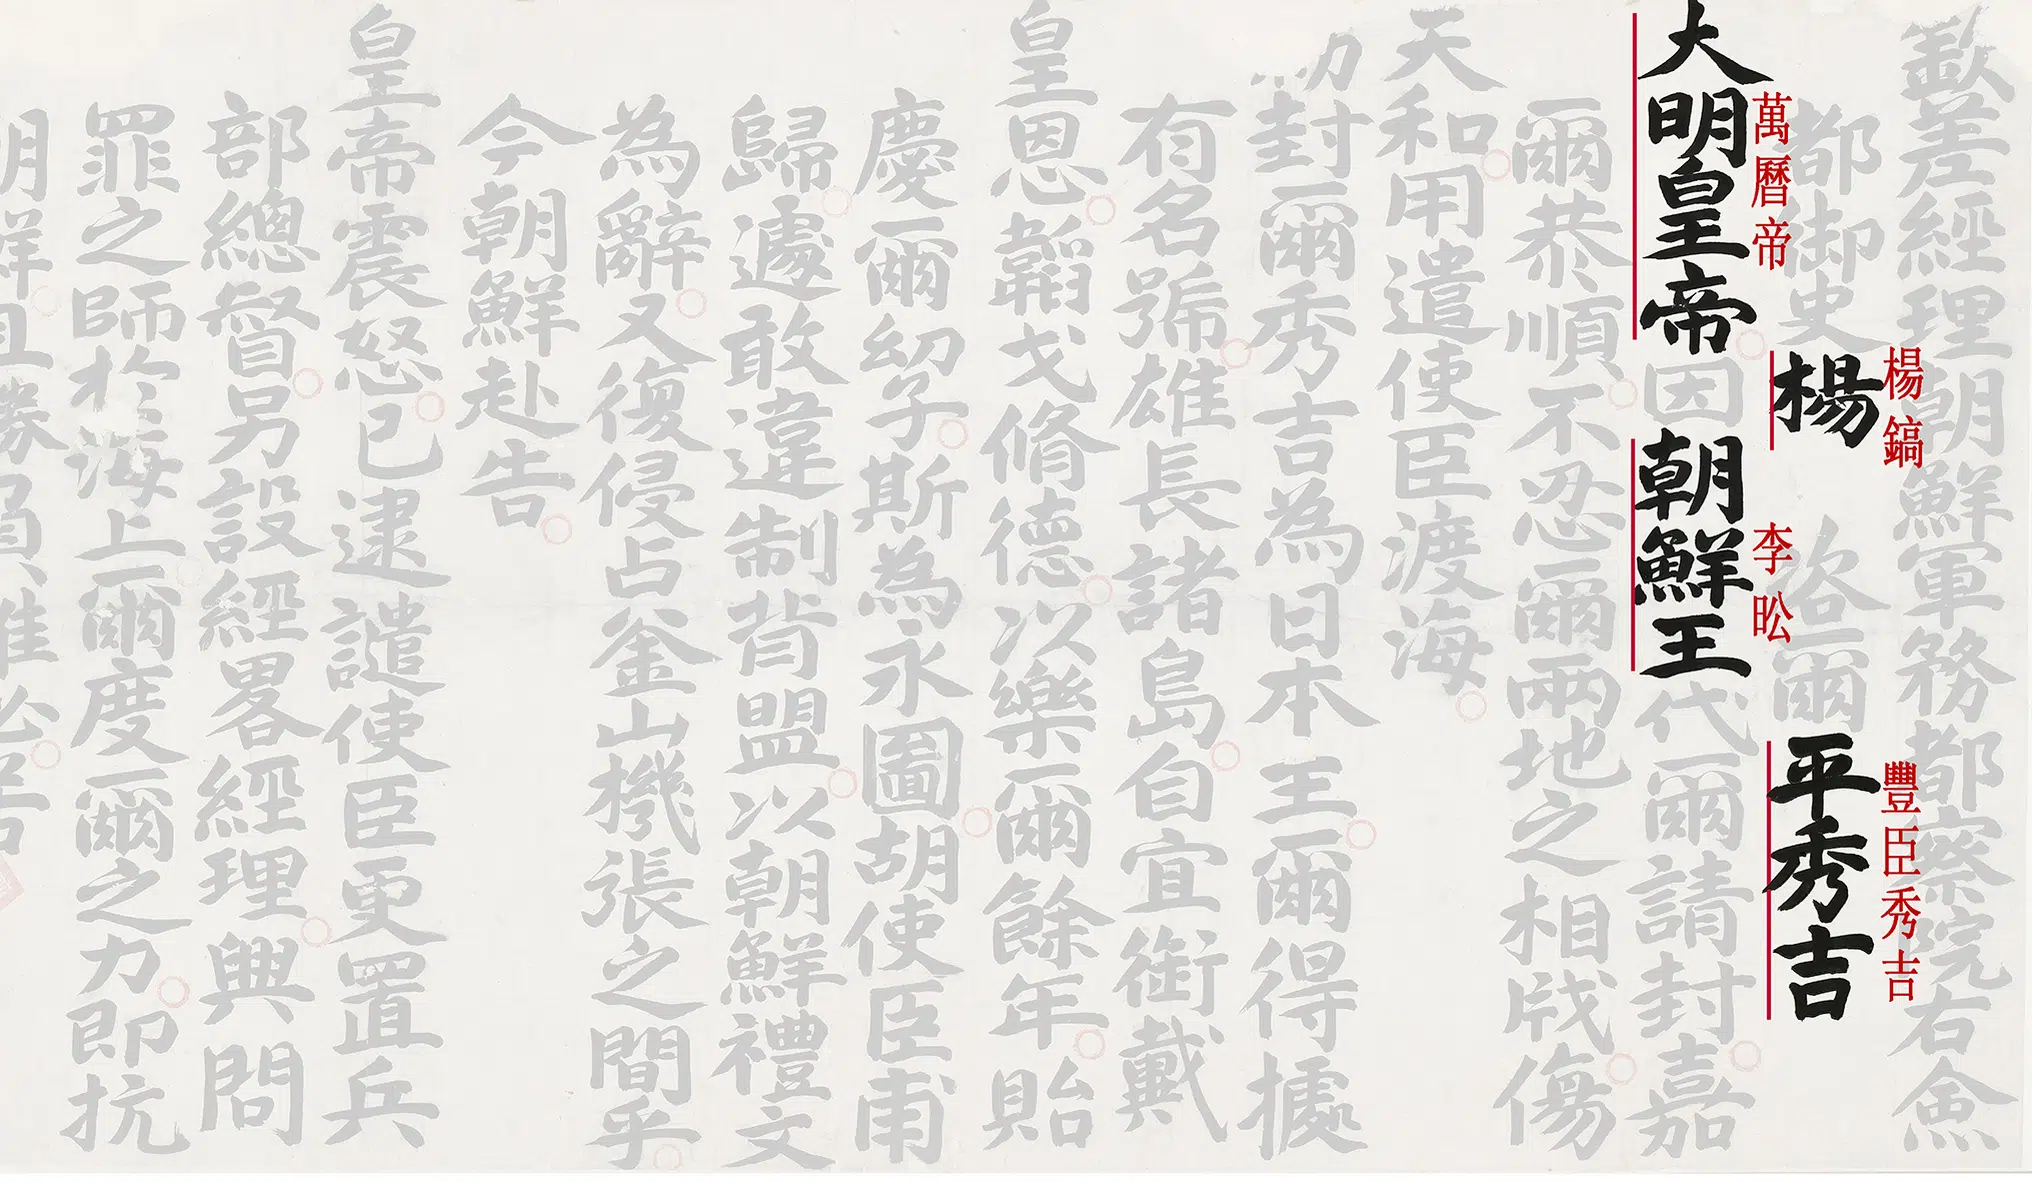 欽差經理朝鮮軍務都察院右僉
楊鎬
豐臣秀吉
都御史楊 咨爾平秀吉
萬曆帝
李昖
大明皇帝因朝鮮王代爾請封嘉
爾恭順不忍爾兩地之相戕傷
天和用遣使臣渡海
勅封爾秀吉為日本王爾得據
有名號雄長諸島自宜銜戴
皇恩韜戈脩德以樂爾餘年貽
慶爾幼子斯為永圖胡使臣甫
歸遽敢違制背盟以朝鮮禮文
為辭又復侵占釜山機張之間乎
今朝鮮赴告
皇帝震怒已逮譴使臣更置兵
部總督另設經畧經理興問
罪之師於海上爾度爾之力即抗
朝鮮且勝負